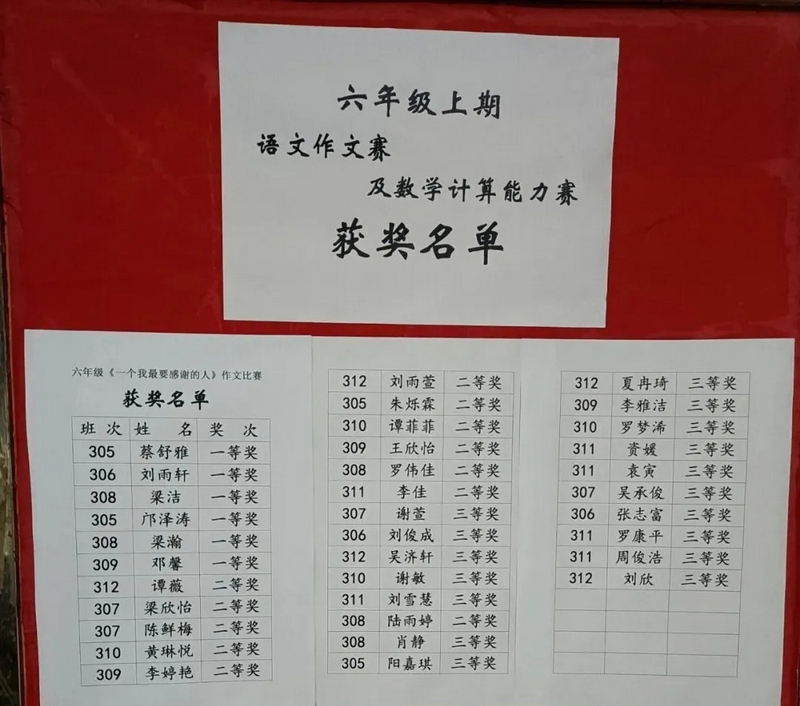 六年级上期
语文作文赛
及数学计算能力赛
获奖名单
六年级《一个我最要感谢的人》作文比赛
获奖名单
班 次 姓 名 奖 次
305 蔡舒雅 一等奖
306 刘雨轩 一等奖
308 梁洁 一等奖
305 邝泽涛 一等奖
308 梁瀚 一等奖
309 邓馨 一等奖
312 谭薇 二等奖
307 梁欣怡 二等奖
307 陈鲜梅 二等奖
310 黄琳悦 二等奖
309 李婷艳 二等奖
312 刘雨萱 二等奖
305 朱烁霖 二等奖
310 谭菲菲 二等奖
309 王欣怡 二等奖
308 罗伟佳 二等奖
311 李佳 二等奖
307 谢萱 三等奖
306 刘俊成 三等奖
312 吴济轩 三等奖
310 谢敏 三等奖
311 刘雪慧 三等奖
308 陆雨婷 二等奖
308 肖静 三等奖
305 阳嘉琪 三等奖
312 夏冉琦 三等奖
309 李雅洁 三等奖
310 罗梦浠 三等奖
311 资媛 三等奖
311 袁寅 三等奖
307 吴承俊 三等奖
306 张志富 三等奖
311 罗康平 三等奖
311 周俊浩 三等奖
312 刘欣 三等奖